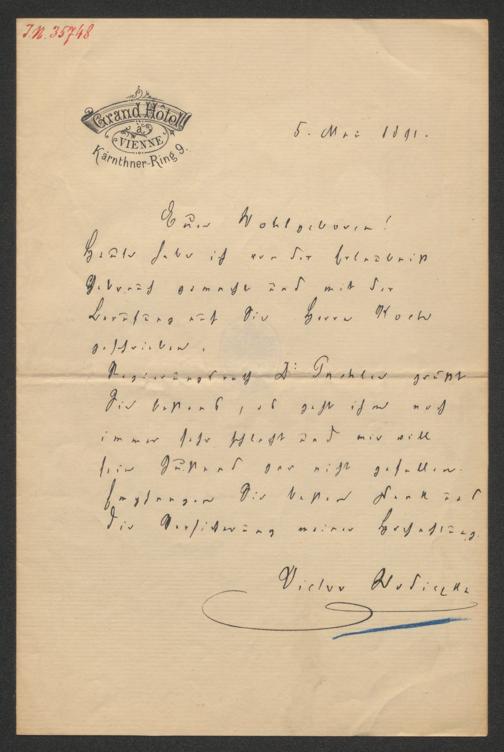 I.N. 35748
Grand Hôtel
à
VIENNE
Kärnthner-Ring 9.
5. Mai 1891.
Euer Wohlgeboren!
Heute habe ich von der Erlaubniß
Gebrauch gemacht und mit der
Berufung auf Sie Herrn Koch
geschrieben.
Regierungsrath Dr. Puchler grüßt
Sie bestens, es geht ihm noch
immer sehr schlecht und mir will
sein Zustand gar nicht gefallen.
Empfangen Sie besten Dank und
die Versicherung meiner Hochachtung.
Victor Wodiczka